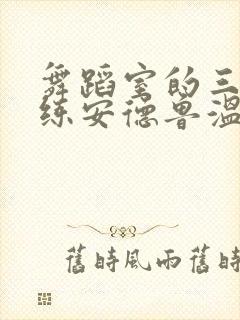 舞蹈室的三
练安德鲁温
舊時風雨舊時